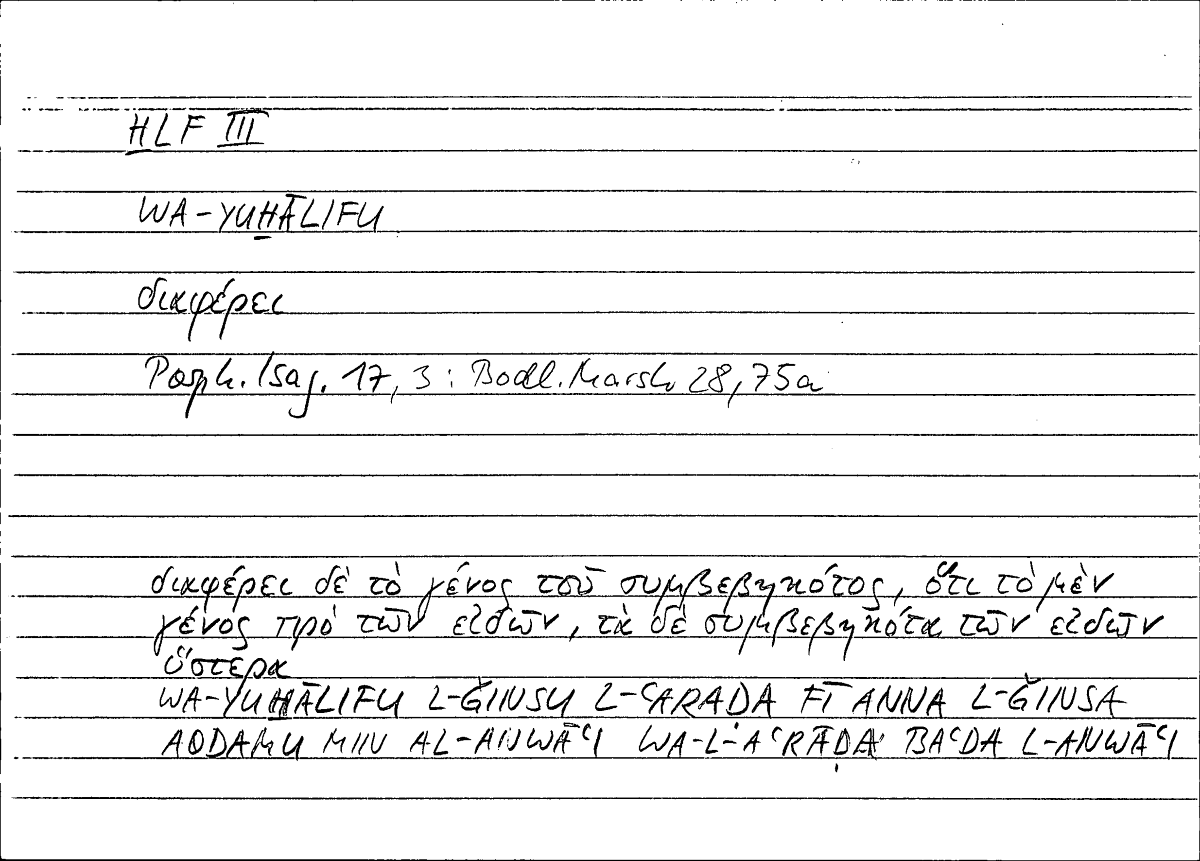 H̱LF III
WA-YUH̱ĀLIFU
διαφέρει
Porph. Isag. 17, 3 : Bodl. Marsh 28, 75a
διαφέρει δὲ τὸ γένος τοῦ συμβεβηκότος, ὅτι τὸ μὲν
γένος πρὸ τῶν εἰδῶν, τὰ δὲ συμβεβηκότα τῶν εἰδῶν
ὕστερα
WA-YUH̱ĀLIFU L-ǦINSU L-ʿARAḌA FĪ ANNA L-ǦINSA
AQDAMU MIN AL-ANWĀʿI WA-L-AʿRĀḌA BAʿDA L-ANWĀʿI